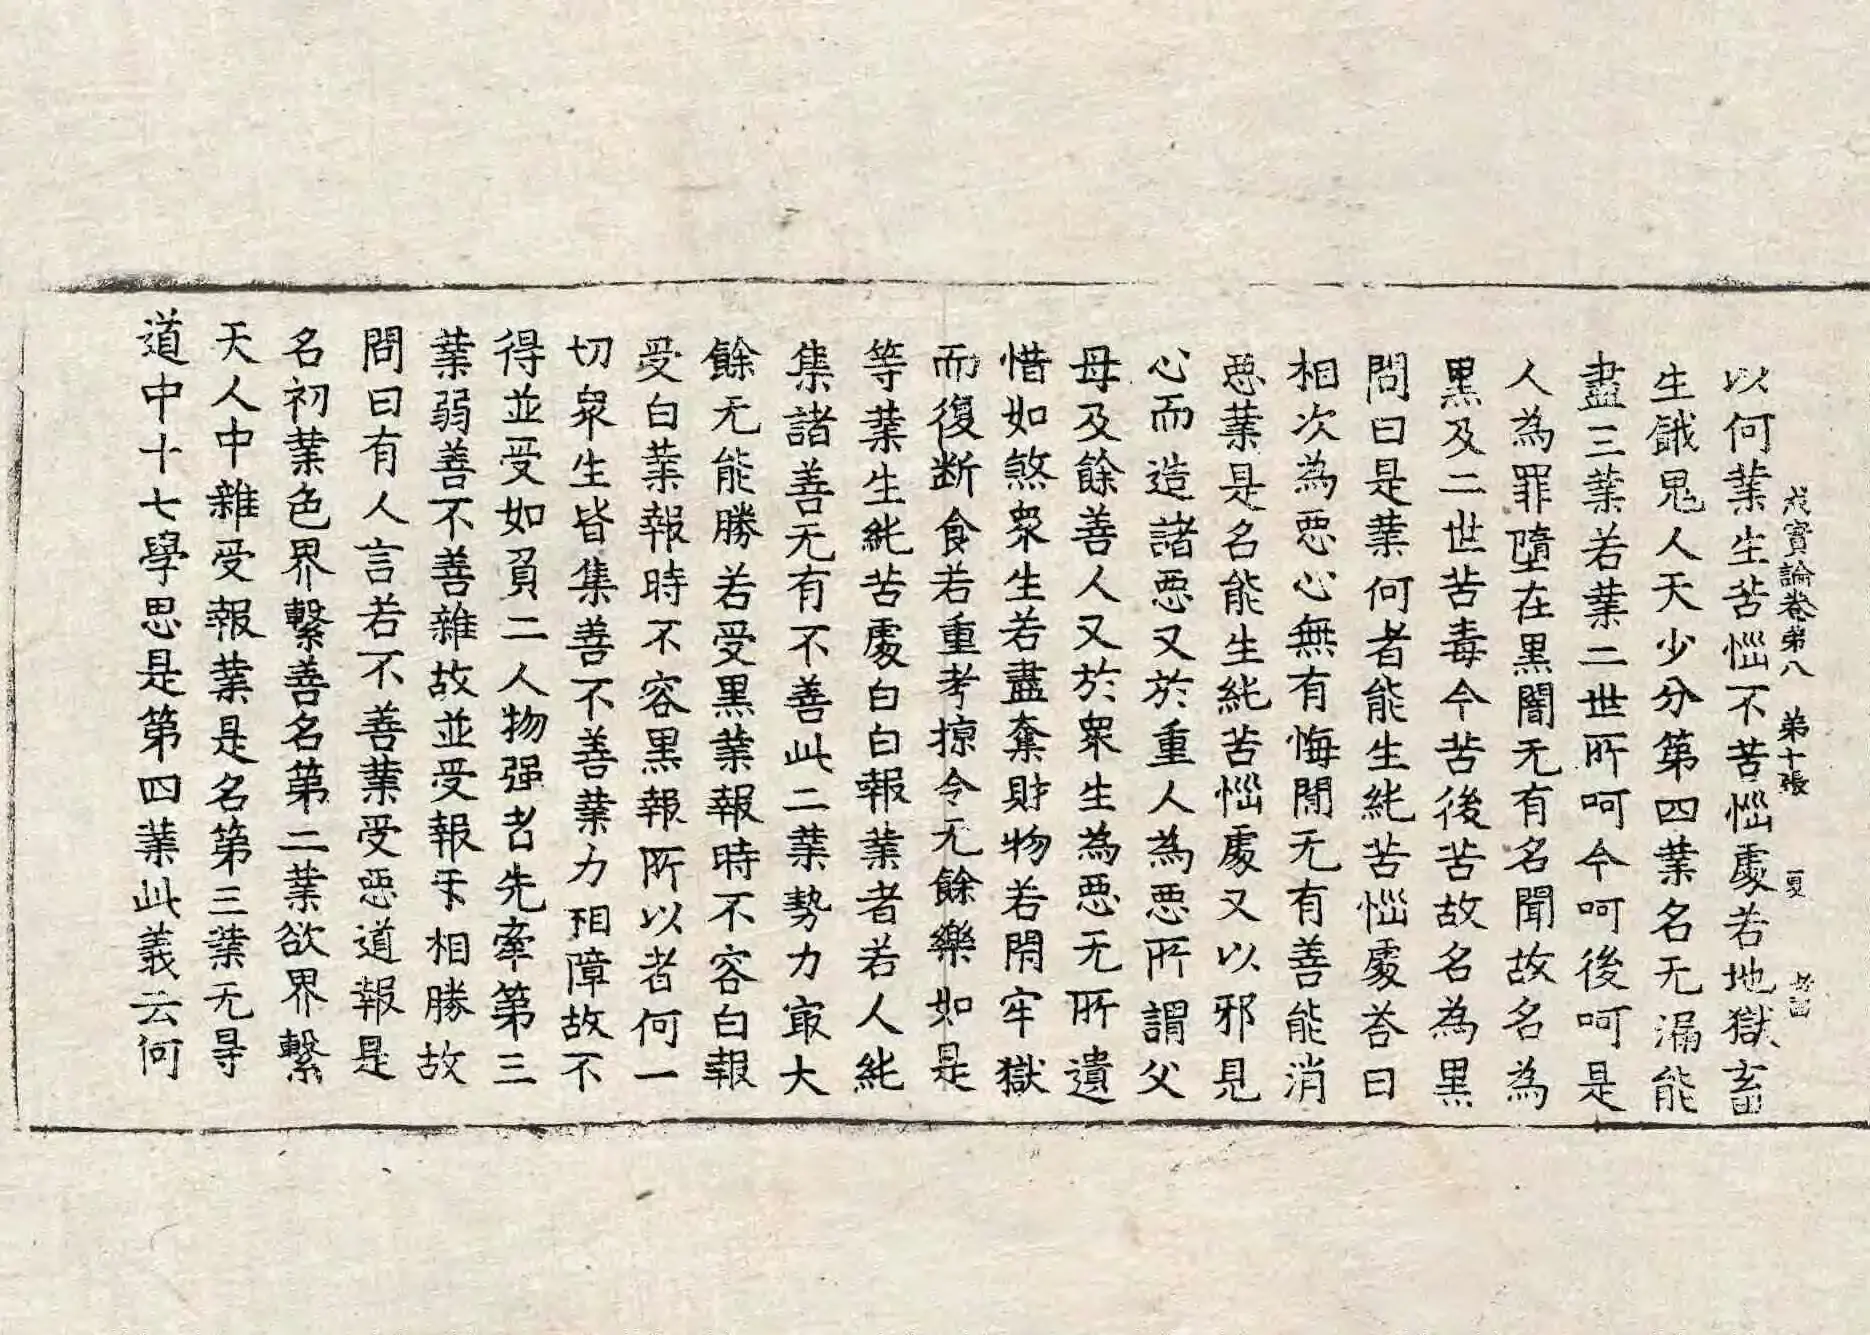 成實論卷第八　第十張　更
以何業生苦惱不苦惱處若地獄畜
生餓鬼人天少分第四業名无漏能
盡三業若業二世所呵今呵後呵是
人為罪墮在黑闇无有名聞故名為
黑及二世苦毒今苦後苦故名為黑
問曰是業何者能生純苦惱處荅曰
相次為惡心無有悔閒无有善能消
惡業是名能生純苦惱處又以邪見
心而造諸惡又於重人為惡所謂父
母及餘善人又於衆生為惡无所遺
惜如煞衆生若盡奪財物若閇牢獄
而復断食若重考掠令无餘樂如是
等業生純苦處白白報業者若人純
集諸善无有不善此二業勢力冣大
餘无能勝若受黑業報時不容白報
受白業報時不容黑報所以者何一
切衆生皆集善不善業力相障故不
得並受如負二人物强者先牽第三
業弱善不善雜故並受報不相勝故
問曰有人言若不善業受惡道報是
名初業色界繫善名第二業欲界繫
天人中雜受報業是名第三業无㝵
道中十七學思是第四業此義云何